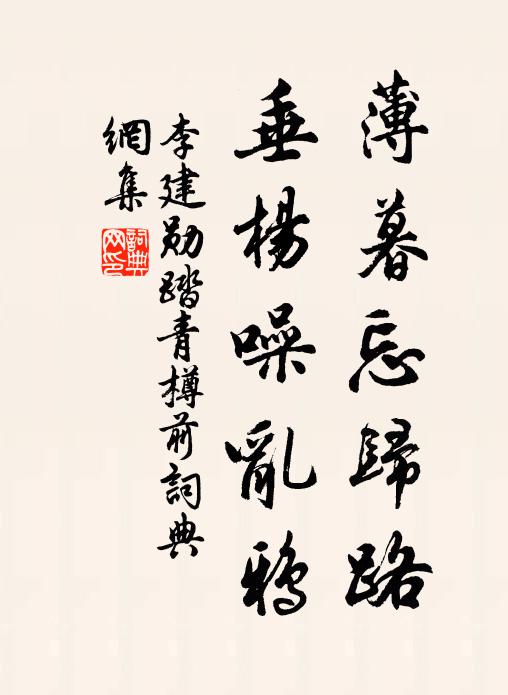 薄暮忘歸路
垂楊噪亂鴉
李建勋踏青樽前詞典
網集
詞典
网印